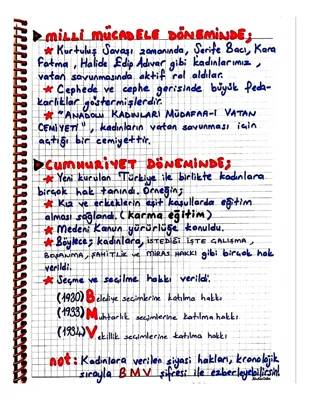 MİLLİ MÜCADELE DÖNEMİNDE;
Kurtuluş Savaşı zamanında, Şerife Bacı, Kara
Fatma, Halide Edip Adıvar gibi kadınlarımız,
vatan savunmasında aktif rol aldılar.
Cephede ve cephe gerisinde büyük feda-
karlıklar göstermişlerdir.
"ANADOLU KADINLARI MÜDAFAA-İ VATAN
CEMİYETİ", kadınların vatan savunması için
açtığı bir cemiyettir.
CUMHURİYET DÖNEMİNDE;
Yeni kurulan Türkiye ile birlikte kadınlara
birçok hak tanındı. Örneğin;
Kız ve erkeklerin eşit koşullarda eğitim
alması sağlandı. (karma eğitim)
Medeni Kanun yürürlüğe konuldu.
Böylece; kadınlara, İSTEDİĞİ İŞTE ÇALIŞMA,
BOŞANMA, ŞAHİTLİK ve MİRAS HAKKI gibi birçok hak
verildi.
Seçme ve seçilme hakkı verildi.
(1930) Belediye seçimlerine katılma hakkı
(1933) Muhtarlık seçimlerine katılma hakkı
(1934) Vekillik seçimlerine katılma hakkı
not: Kadınlara verilen siyasi hakları, kronolojik
sırayla BMV şifresi ile ezberleyebilirsin!